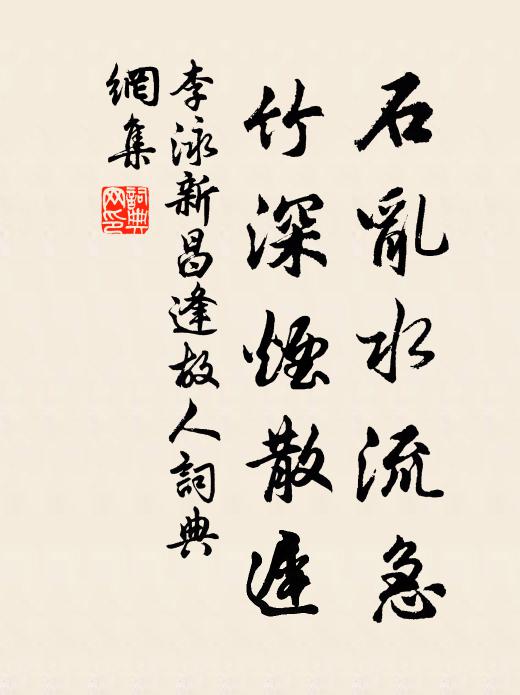 石亂水流急
竹深煙散遲
李泳新昌逢故人詞典
網集
詞典
网印